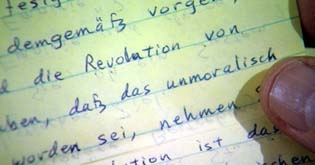 demgemäß vorge
die Revolution von
ben, daß das unmoralisch
worden sei, nehmen
lution ist das